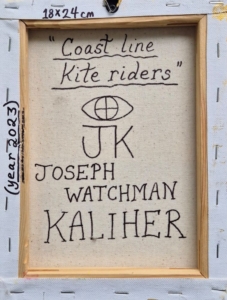 18x24cm
"Coast line
Kite riders"
JK
JOSEPH
WATCHMAN
KALIHER
(year 2023)